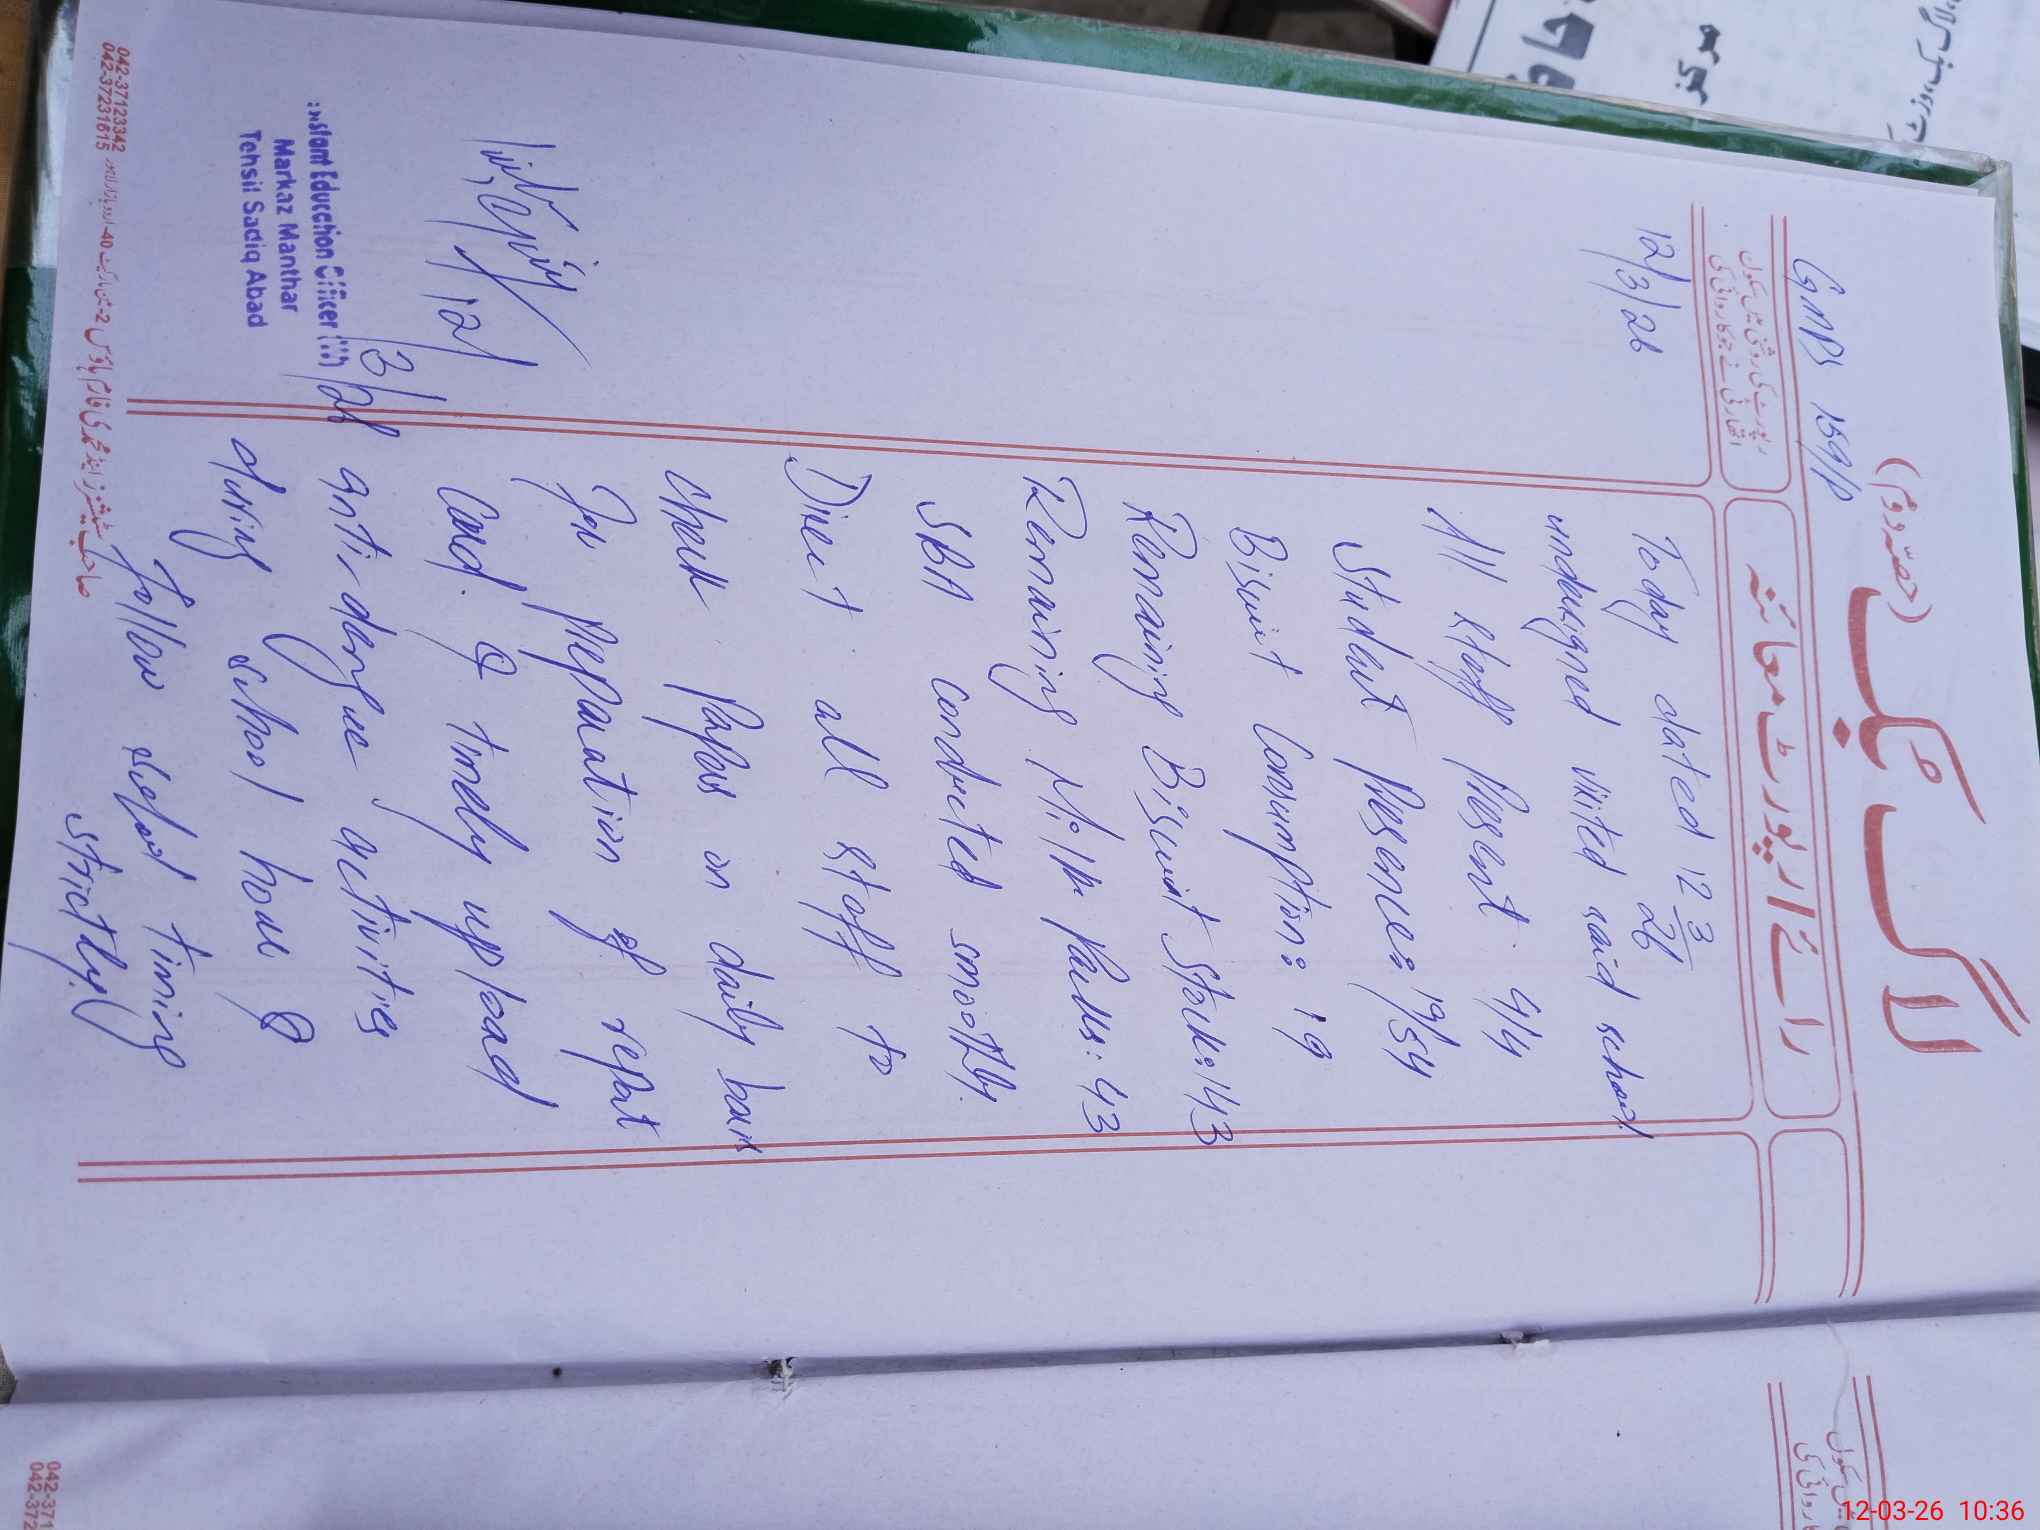 لاگ بک
(حصہ دوم)
GMPS 159/P
رائے / رپورٹ معائنہ
رپورٹ کی روشنی میں سکول
اتھارٹی نے جو کاروائی کی
12/3/26
Today dated 12 3/26
undersigned visited said school
All staff Present. 4/4
Student Presence: 19/54
Biscuit Consumption: 19
Remaining Biscuit Stock: 143
Remaining Milk Packs: 43
SBA Conducted smoothly.
Direct all staff to
check Papers on daily basis
For Preparation of report
Card. & timely upload
anti-dengue activities
during school hour &
Follow school timing
strictly.
12/3/26
Education Officer
Markaz Manthar
Tehsil Sadiq Abad
042-37123342
042-37231615
042-371
042-372
مرکز
12-03-26 10:36